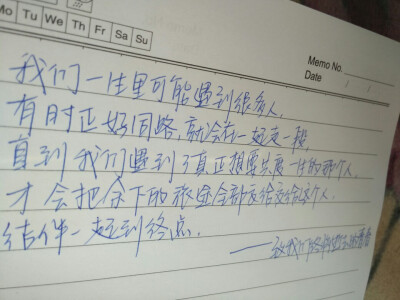 Mo Tu We Th Fr Sa Su
Memo No.
Date / /
我们一生里可能遇到很多人,
有时正好同路,就会在一起走一段,
直到我们遇到了真正想要共度一生的那个人,
才会把余下的旅途全部交给这个人,
结伴一起到终点.
——致我们终将
青春